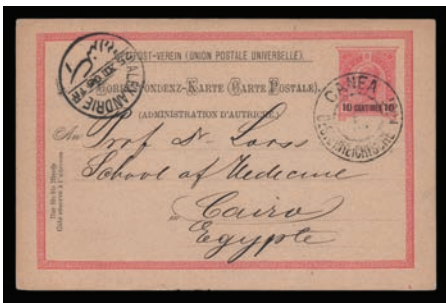 WELTPOST-VEREIN (UNION POSTALE UNIVERSELLE).
CORRESPONDENZ-KARTE (CARTE POSTALE),
(ADMINISTRATION D'AUTRICHE.)
10 CENTIMES 10
CANEA
OESTERREICHISCHE
ALEXANDRIE
An Prof Dr Looss
School of Medecine
Cairo
Egypte
Nur für die Adresse
Côté réservé à l'adresse